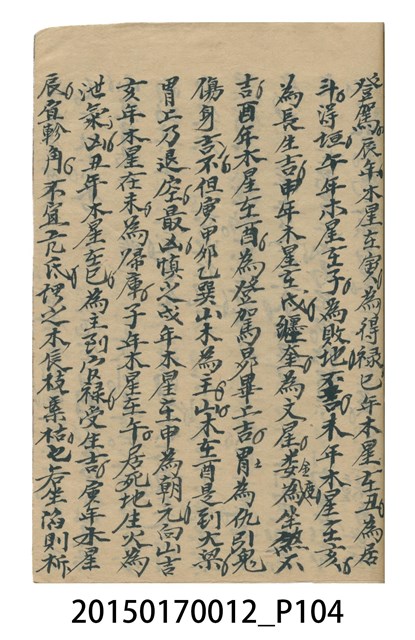 登駕辰年木星在寅為得祿巳年木星在丑為居
斗得垣午年木星在子為敗地不吉未年木星在亥
為長生吉申年木星在氐纏奎為文星婁金度為坐煞不
吉酉年木星在酉為登駕昴畢二吉胃土為仇引鬼
傷身吉不但寅甲卯乙巽山木為主山木在酉是到大梁
胃土乃退度最凶慎之戌年木星在申為朝元向山吉
亥年木星在未為歸庫子年木星在午居死地生火為
泄氣凶丑年木星在巳為主到官祿受生吉寅年木星
辰宜軫角不宜亢氐謂之木辰枝葉枯也若坐陷則折
20150170012_P104